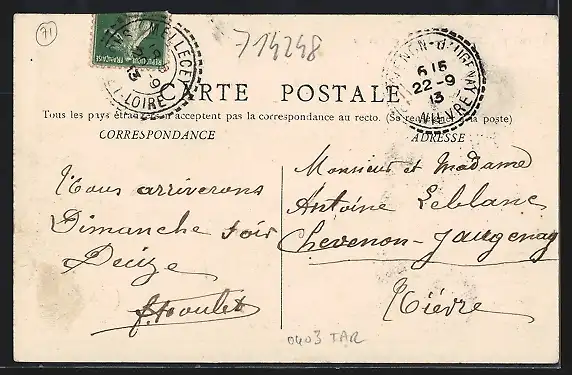 71
714248
CARTE POSTALE
Tous les pays étrangers n'acceptent pas la correspondance au recto. (Se renseigner à la poste)
CORRESPONDANCE
ADRESSE
Nous arriverons
Dimanche soir
Decize
Monsieur et Madame
Antoine Leblanc
Chevenon-Jaugenay
Nièvre
6 15
22-9
13
NIEVRE
0403 TAR